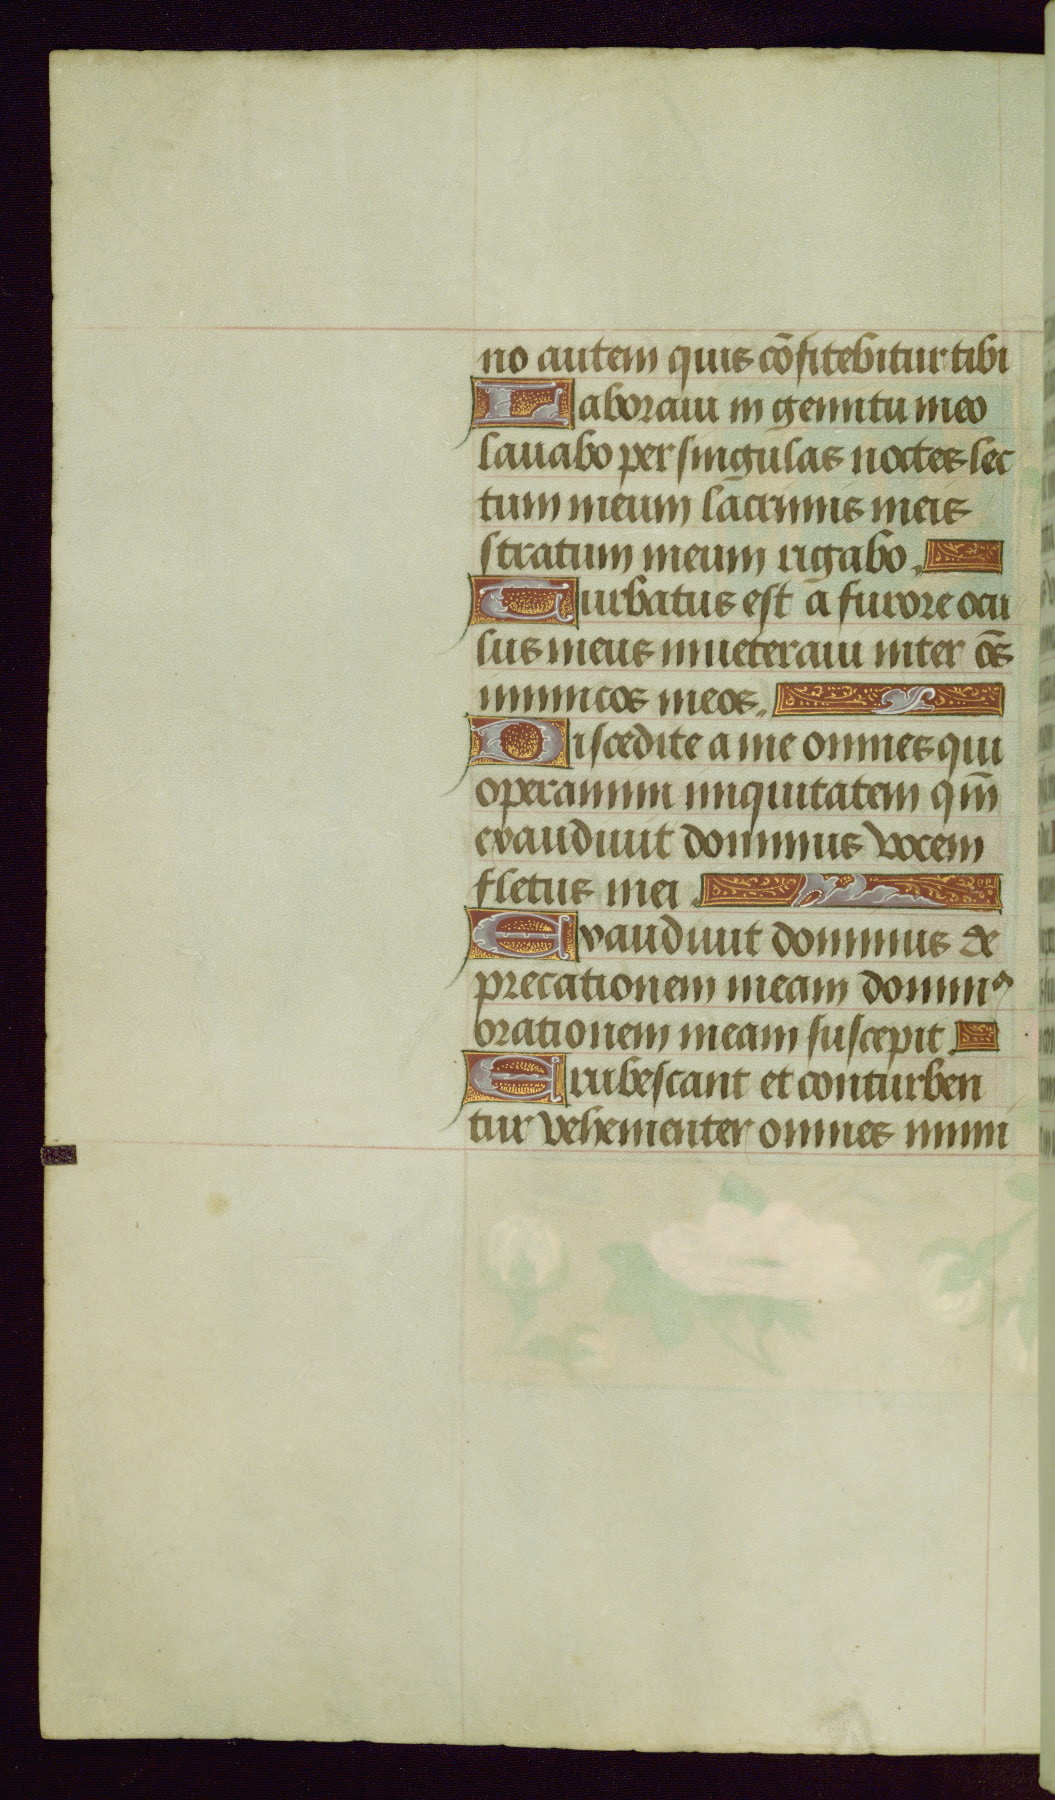 no autem quis cōfitebitur tibi
Laboraui in gemitu meo
lauabo per singulas noctes lec
tum meum lacrimis meis
stratum meum rigabo.
Turbatus est a furore ocu
lus meus inueteraui inter oēs
inimicos meos.
Discedite a me omnes qui
operamini iniquitatem qm̄
exaudiuit dominus vocem
fletus mei.
Exaudiuit dominus de
precationem meam dominꝰ
orationem meam suscepit.
Erubescant et conturben
tur vehementer omnes inimi